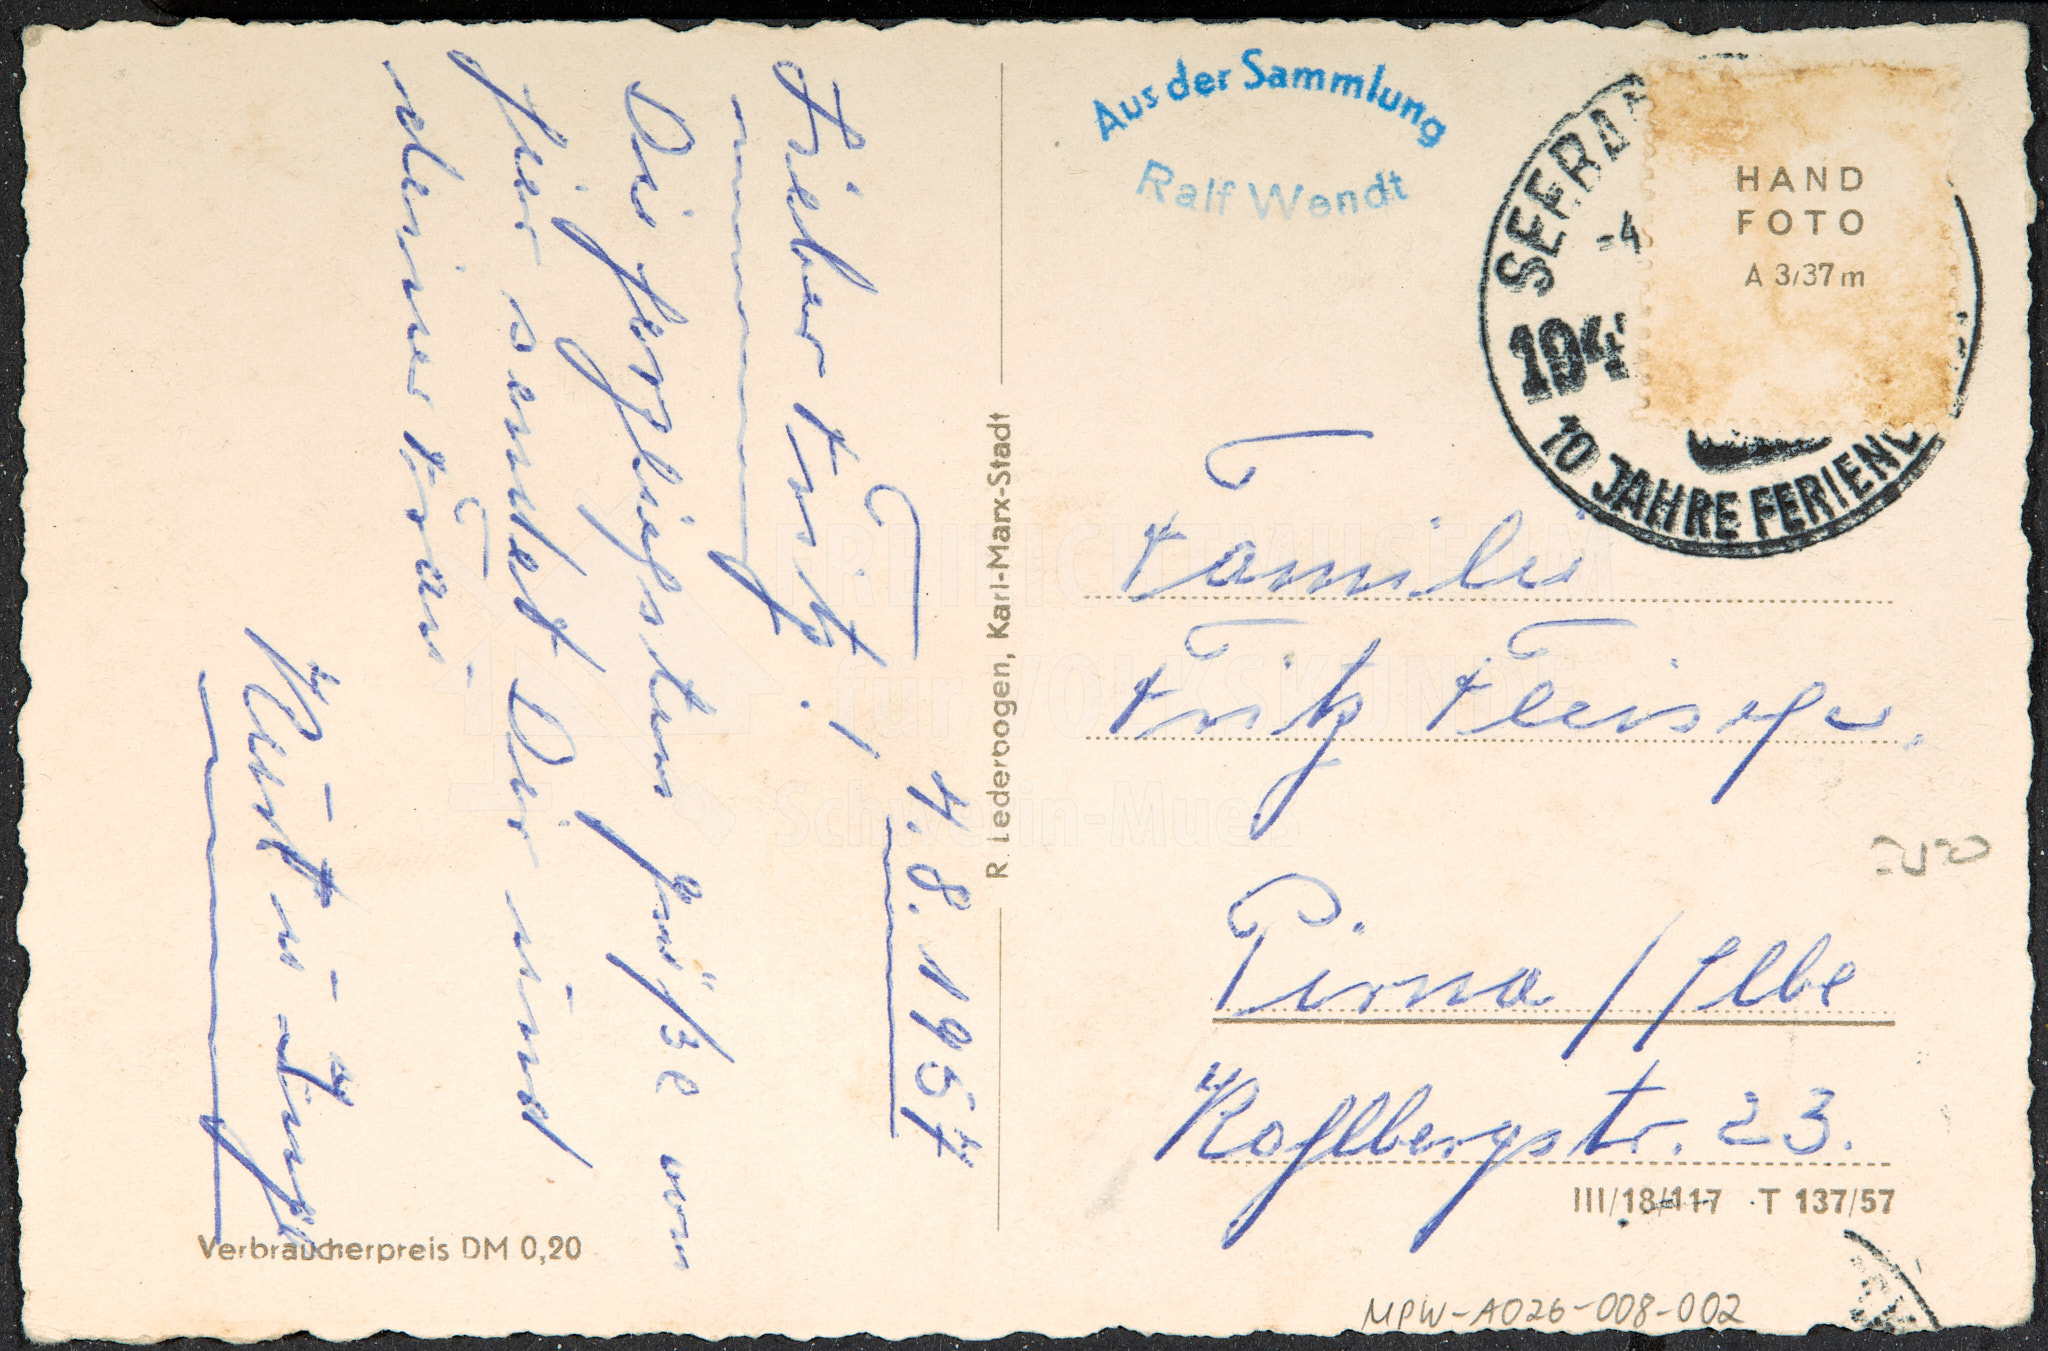 4.8.1957
Lieber Fritz!
Die herzlichsten Grüße von
hier sendet Dir und
deiner Frau.
Kurt u. Inge
Verbraucherpreis DM 0,20
R. Lederbogen, Karl-Marx-Stadt
Aus der Sammlung
Ralf Wendt
SEEBA
-4
194
10 JAHRE FERIEN
HAND
FOTO
A 3/37 m
Familie
Fritz Fleischer.
Pirna / Elbe
Kohlbergstr. 23.
III/18/117 T 137/57
MPW-A026-008-002
FREILICHTMUSEUM
für VOLKSKUNDE
Schwerin-Mueß